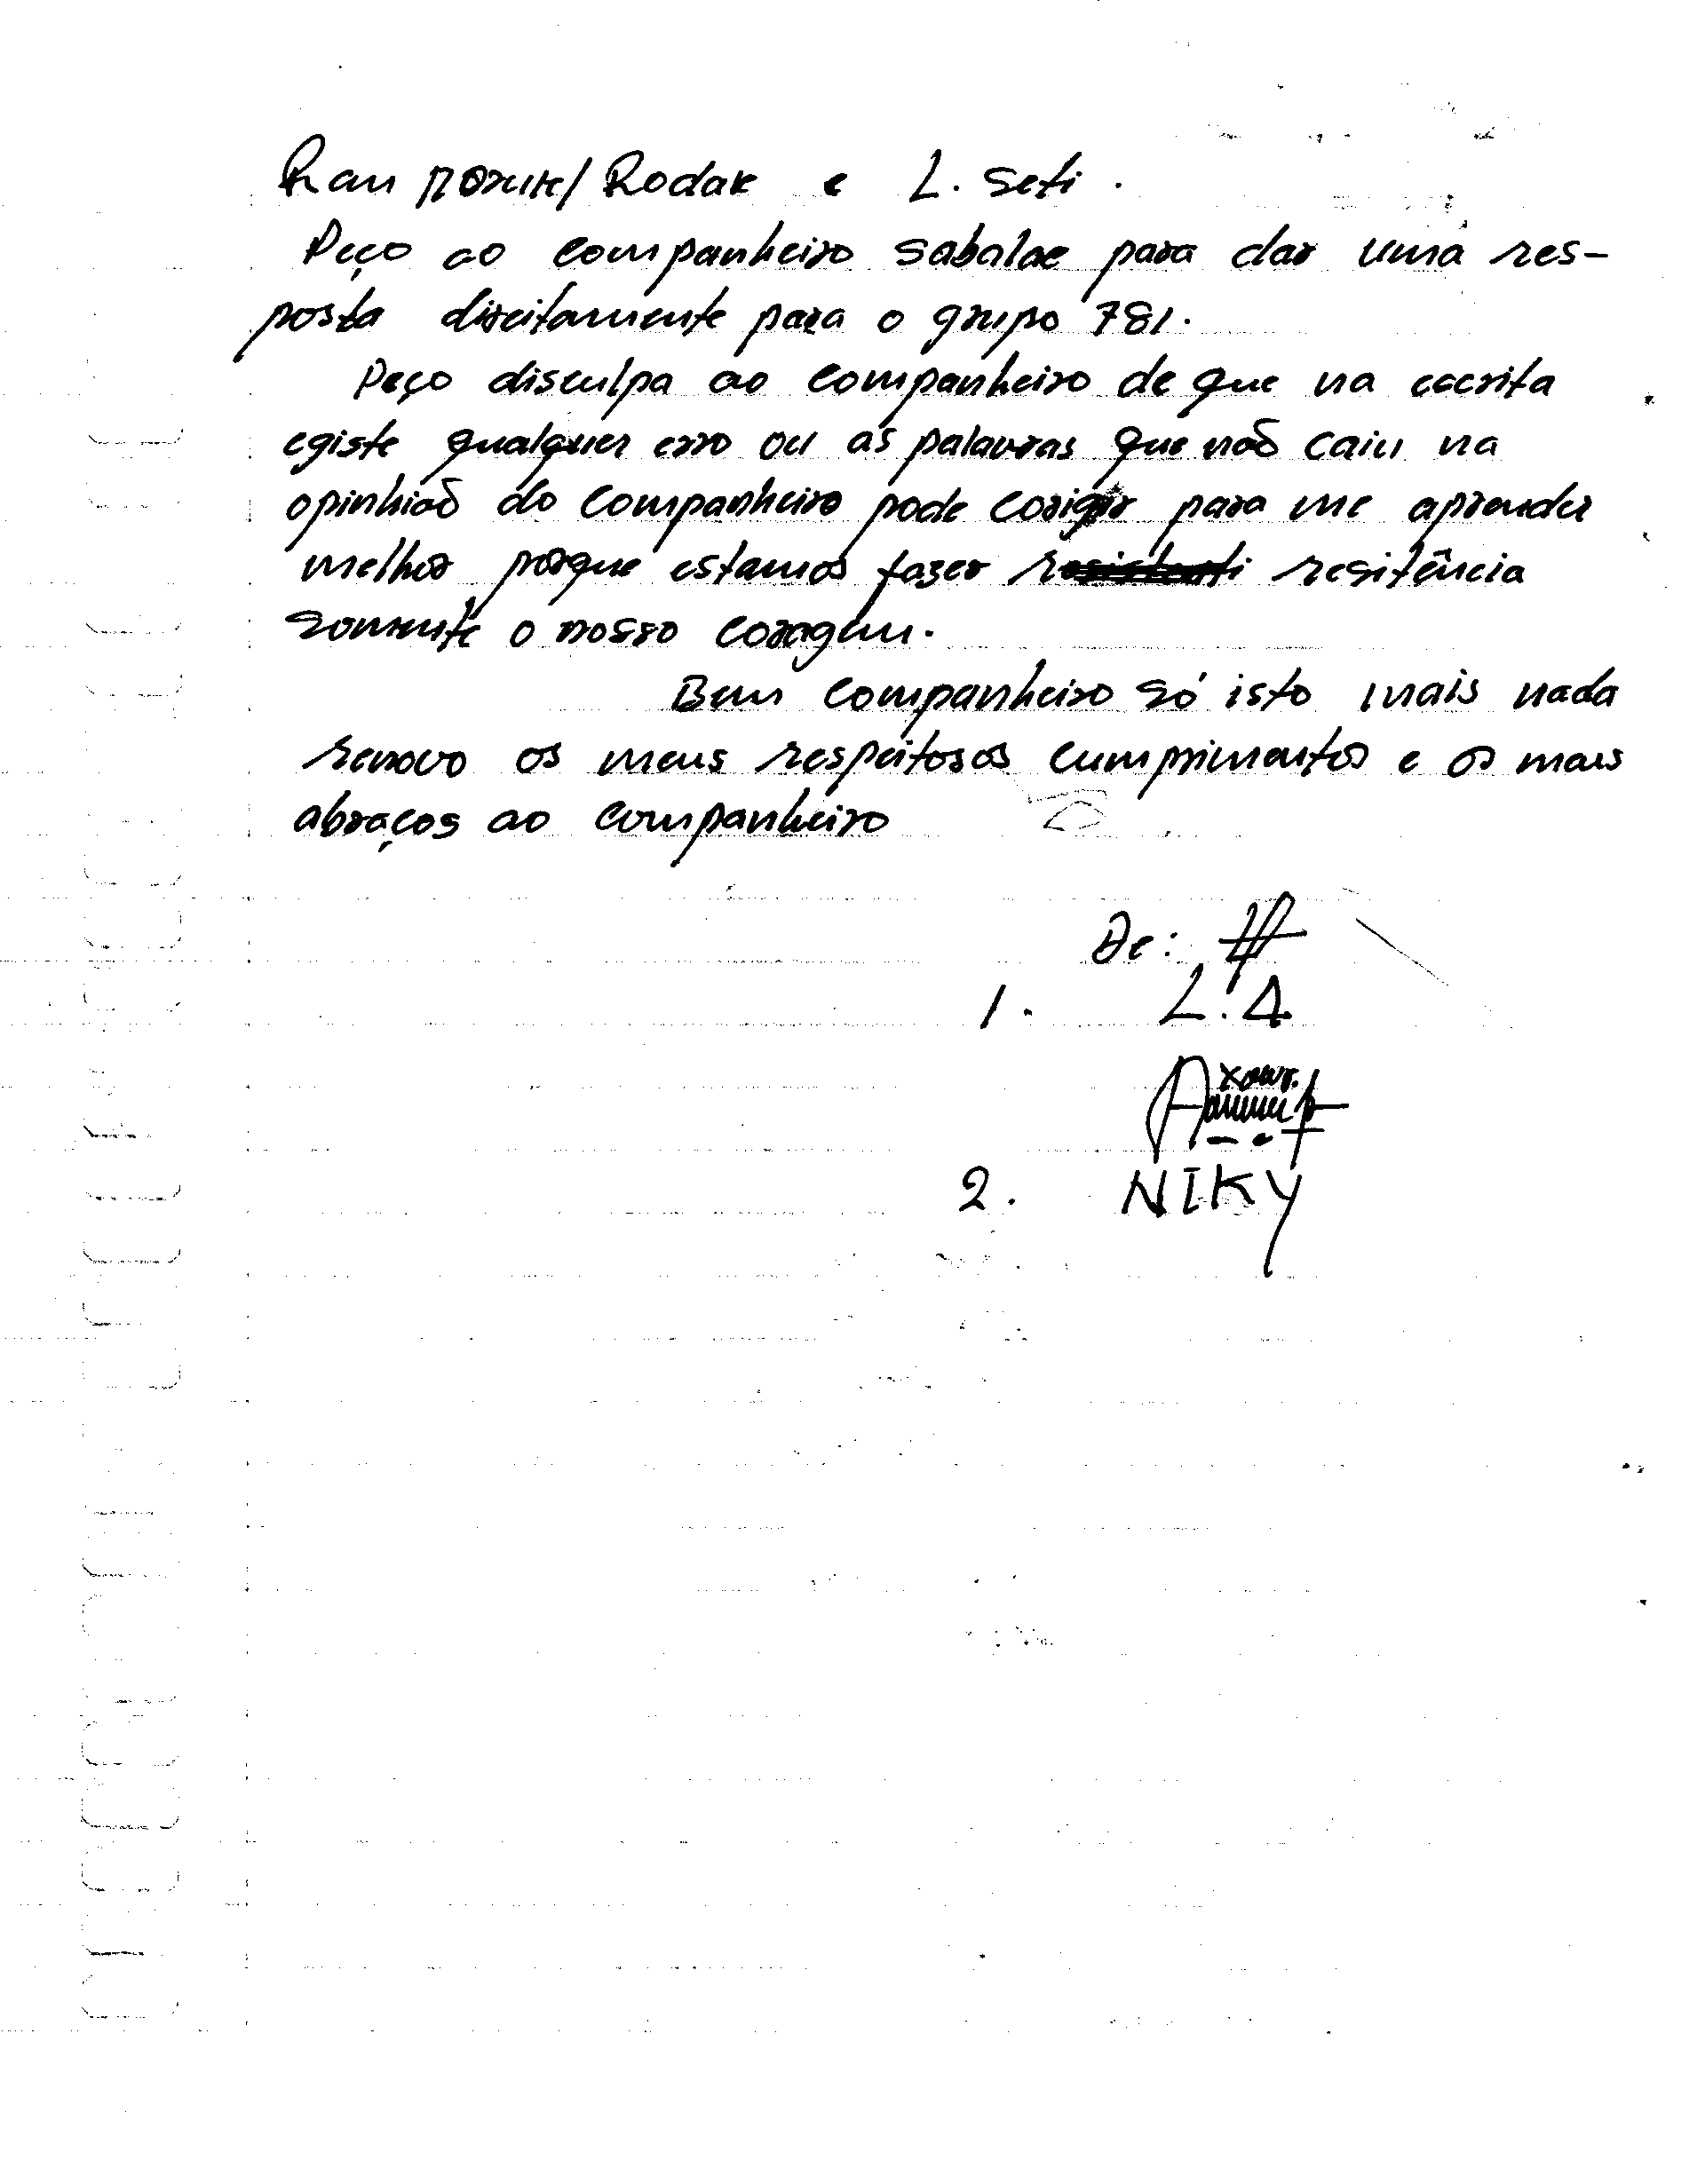 Ran / Rodak e L. Seti.
Peço ao companheiro sabalae para dar uma res-
posta direitamente para o grupo 781.
Peço disculpa ao companheiro de que na escrita
egiste qualquer erro ou as palavras que não caiu na
opinhião do companheiro pode corigir para me aprender
melhor porque estamos fazer resitência
somente o nosso coragem.
Bem companheiro só isto mais nada
renovo os meus respeitosos cumprimentos e os mais
abraços ao companheiro
De:
1. L.A
2. NIKY